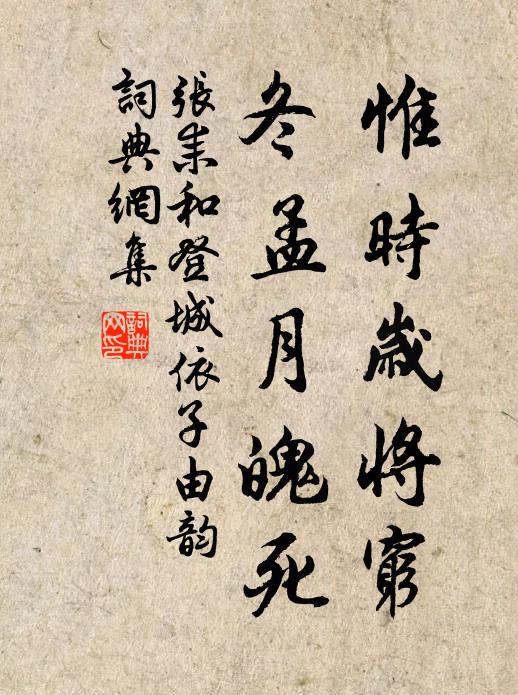 惟時歲將窮
冬孟月魄死
張耒和登城依子由韵
詞典網集
詞典
网印